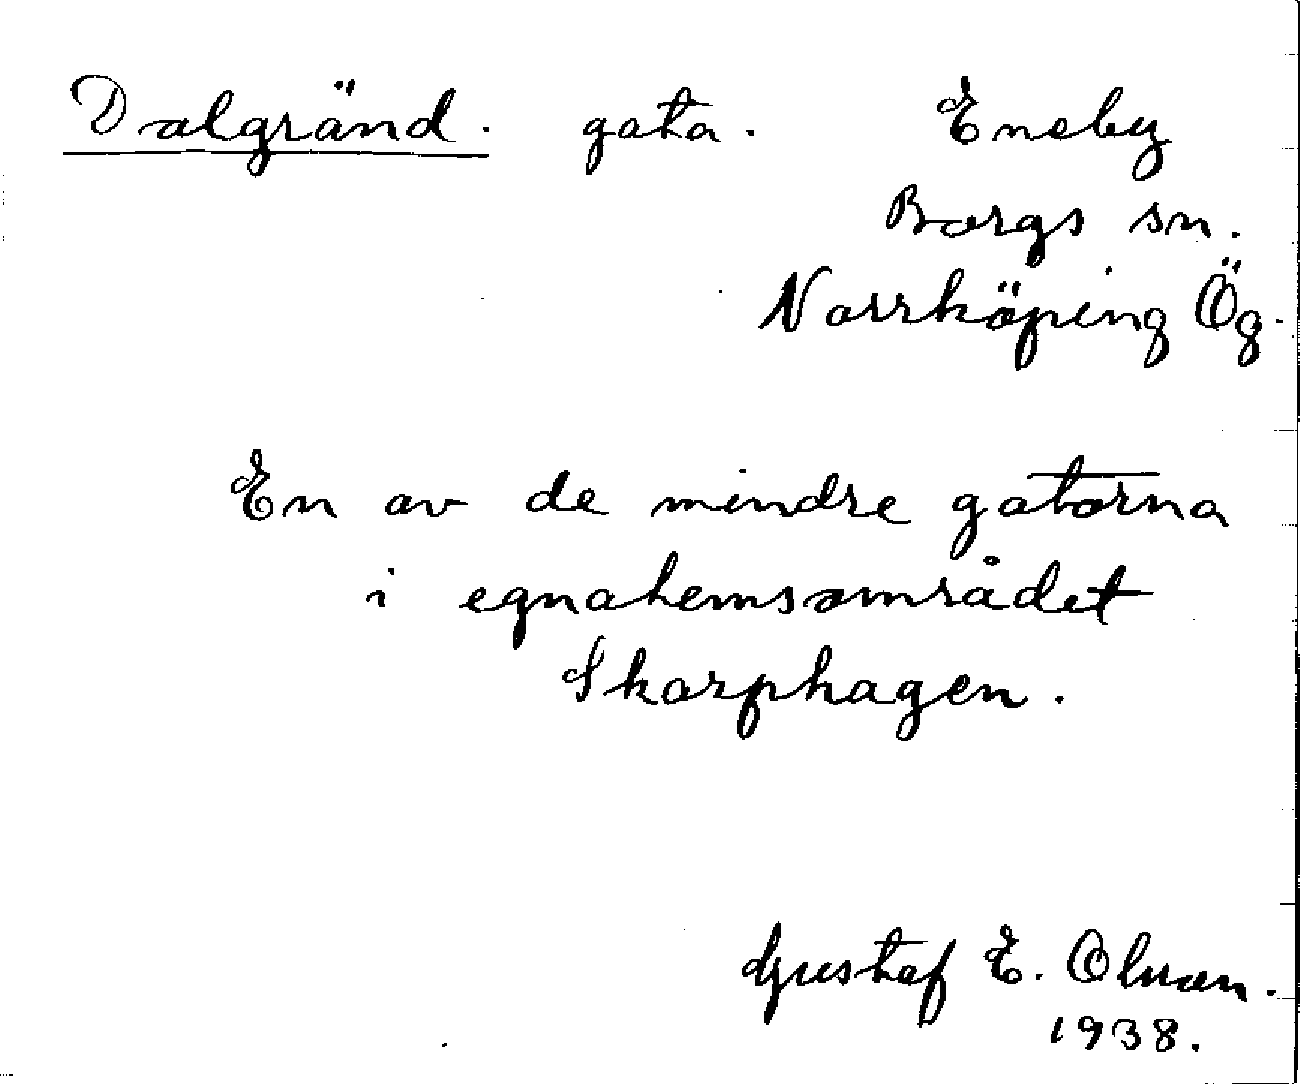 Dalgränd. gata. Eneby
Borgs sn.
Norrköping Ög.
En av de mindre gatorna
i egnahemsområdet
Skarphagen.
Gustaf E. Olsson.
1938.